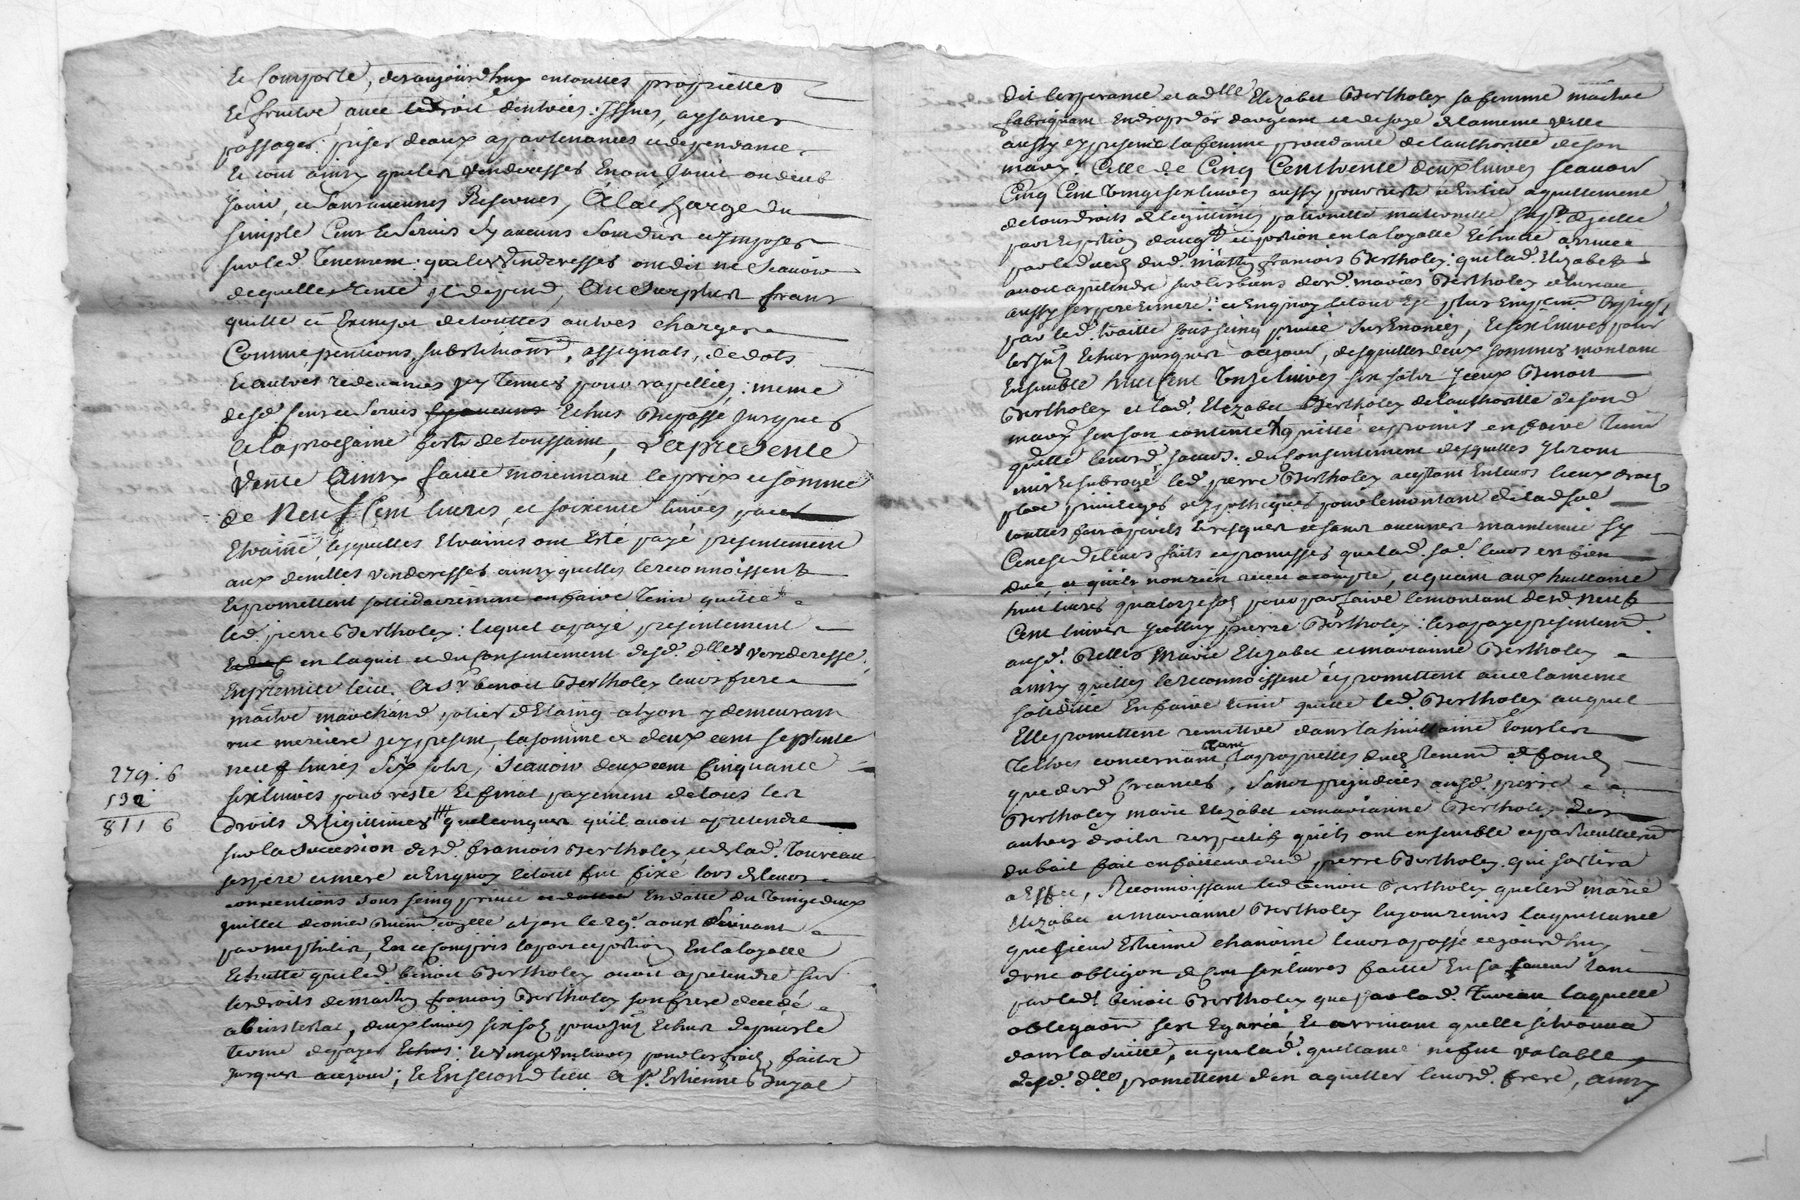 Et Comporte, des aujourd'huy en touttes proprietes
Et fruitve, avec le droit d'entrées, Issues, aysances
passages, prises deaux apartenances et dependances
Le tout ainsy que les venderesses En ont Jouit ou deub
Jouir, et sans aucunes Reserves, A la charge du
simple Cens et Servis sy aucuns sont dus et Imposes
sur led. Tenement: que les venderesses ont dit ne scavoir
de quelle rente Il depend, Au surplus franc
quitte et Exempt de touttes autres charges
Comme pentions, substitutions, assignats, de dots
Et autres redevances
desd. cens et servis Echus du passé Jusques
A la prochaine feste de toussaint, La presente
Vente Ainsy faitte moiennant le prix et somme
de Neuf Cent livres, et soixente livres pour
Etraine lesquelles Etraines ont Eté payé presentement
aux demlles venderesses ainsy quelles le reconnoissent
Et promettent sollidairement en faire tenir quitte
led. pierre Bertholey: lequel a payé presentement
en laquit et du Consentement desd. dlles venderesse
En premier lieu. A sr. benoit Bertholey leur frere
maitre marchand potier d'Etaing a lyon y demeurant
rue merciere jcy present, la somme de deux cent septente
neuf livres six sols, scavoir deux cent Cinquante
279: 6
six livres pour reste et final payement de tous les
532
droits de legitimes quelconques qu'il avoit a pretendre
811 6
sur la succession desd. francois Bertholey, et de lad. Touveau
ses pere et mere et En quoy le tout fut fixé lors de leurs
conventions sous seing privé En datte du vingt deux
juillet dernier a lyon le 29e. aoust suivant
par En ce compris la part et portion En la loyalle
Echutte que led. benoit Bertholey avoit a pretendre sur
les droits de francois Bertholey son frere decedé
ab intestat, deux livres six sols pour Echus depuis le
terme de payer
Jusques a ce jour; et En second lieu A sr. Estienne Duzal
dit lesperance et a dlle Elizabet Bertholey sa femme maitre
fabriquant En draps d'or d'argeant et de soye de la meme ville
aussy jcy present la femme procedante de l'authoritté de son
mary: Celle de Cinq Cent trente deux livres scavoir
Cinq Cent vingt six livres aussy pour reste et Entier aquittement
de tous droits de legitimes paternelle maternelle
part et portion en la loyalle Echutte
par le deces dud. francois Bertholey: que lad. Elizabeth
avoit a pretendre sur les biens desd. maries Bertholey et Touveau
aussy ses pere et mere: et En quoy le tout
par led. traitté sous seing privé sus Enoncés, et six livres pour
Echus jusques a ce jour, desquelles deux sommes montant
Ensemble huit Cent onze livres six sols Jceux Benoit
Bertholey et lad. Elizabet Bertholey de l'authoritté de son d.
mary se sont contentés, quitté et promis en faire tenir
quitte leurs d. sœurs. du Consentement desquelles Ils ont
mis et subrogé led. pierre Bertholey aceptant En leurs lieux droits
place privileges et hypotheques pour le montant
touttes fois a perils et risques et sans aucunes maintenue
de leurs faits et promesses leurs est bien
due, et qu'ils n'ont rien receu a compte, et quant aux huitante
huit livres quatorze sols pour parfaire le montant desd. neuf
Cent livres Jcelluy pierre Bertholey: les a payé presentement
auxd. Dlles Marie Elizabet et marianne Bertholey
ainsy quelles le reconnoissent et promettent avec la meme
soliditté En faire tenir quitte led. Bertholey auquel
Elle promettent remettre dans la huittaine tous les
Titres concernant tant la proprietté
que desd. Creances, Sans prejudices auxd. pierre
Bertholey marie Elizabet et marianne Bertholey des
autres droits respectifs quils ont ensemble et particullierement
du bail fait dud. pierre Bertholey qui sortira
a Effet, Reconnoissant led. benoit Bertholey que lesd. marie
Elizabet et marianne Bertholey luy ont remis la quittance
que sieur Etienne chanoine leurs a passé ce jourd'huy
d'une obligon. de Cent six livres faitte En sa faveur tant
par led. benoit Bertholey que par lad. Tuveau laquelle
obligaon. s'est Egarée, Et arrivant quelle se trouva
dans la suitte, et que lad. quittance ne fut valable
lesd. dlles promettent d'en aquitter leurs d. frere, ainsy